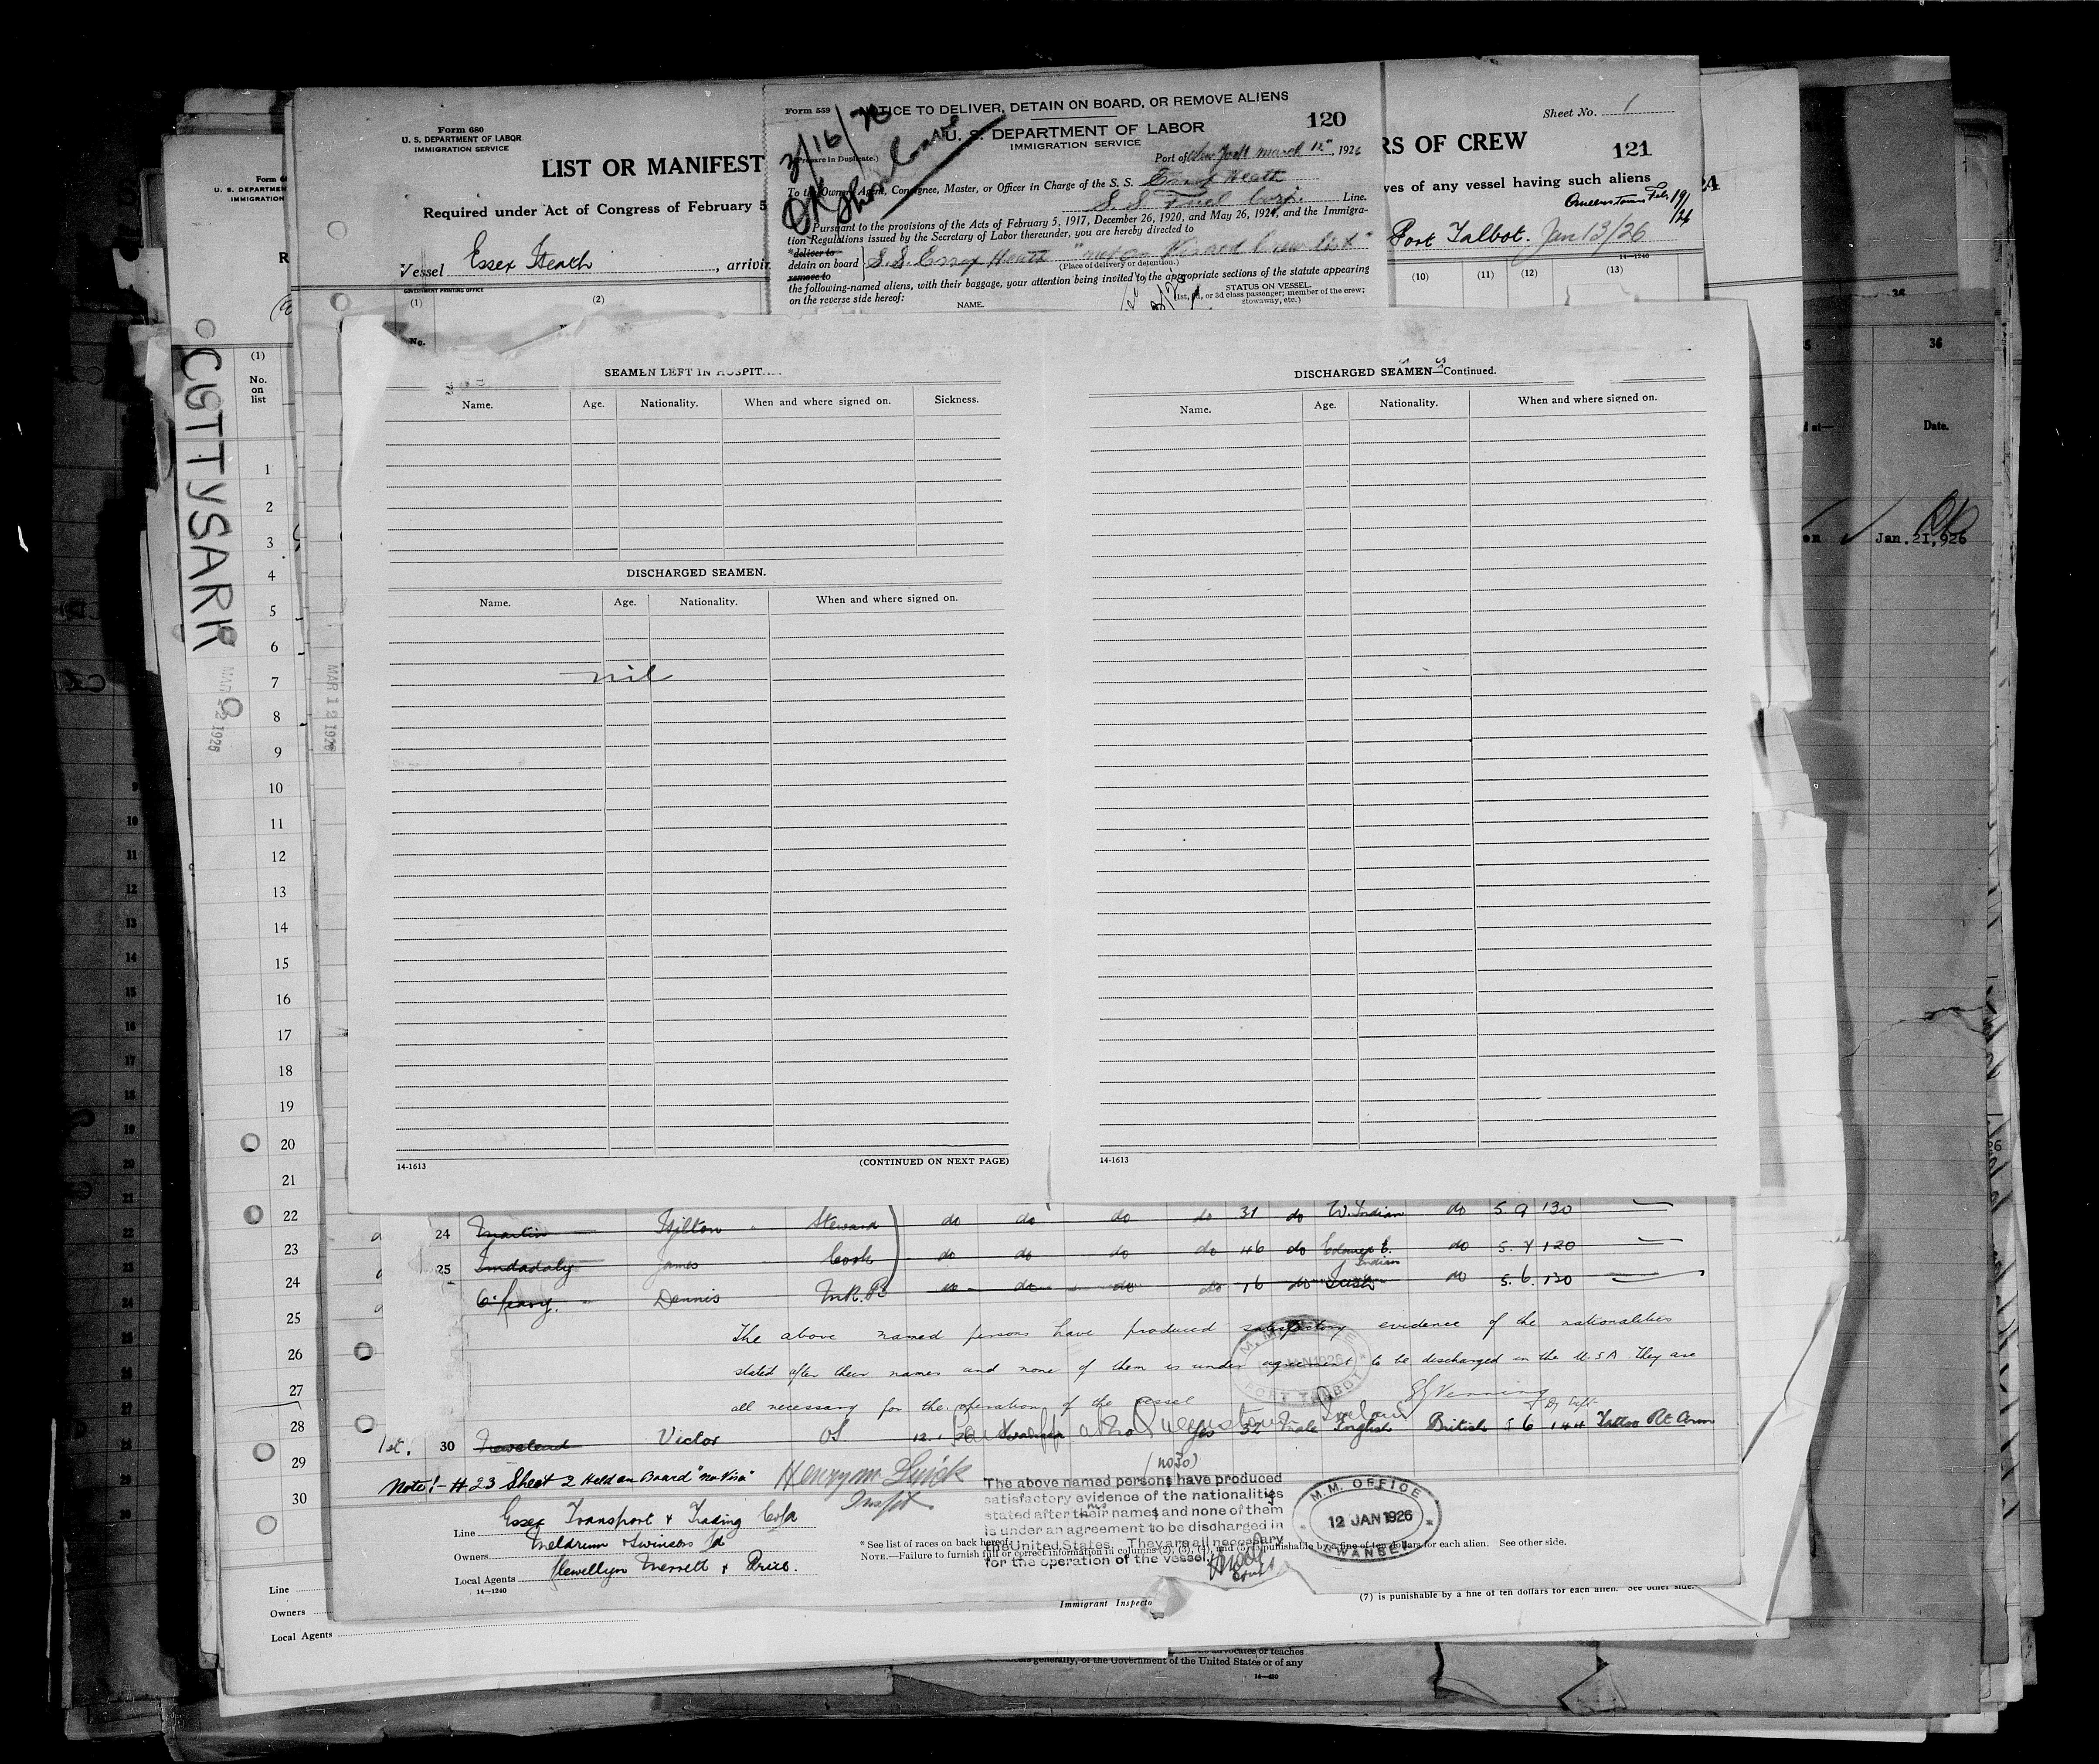 Form 680
U. S. DEPARTMENT OF LABOR
IMMIGRATION SERVICE
LIST OR MANIFEST
Required under Act of Congress of February 5
Vessel Essex Heath, arrivin
GOVERNMENT PRINTING OFFICE
(1) (2)
No.
Form 559
NOTICE TO DELIVER, DETAIN ON BOARD, OR REMOVE ALIENS
3/16/26
OK
120
U. S. DEPARTMENT OF LABOR
IMMIGRATION SERVICE
(Prepare in Duplicate.)
Port of New York March 12", 1926
To the Owner, Agent, Consignee, Master, or Officer in Charge of the S. S. Essex Heath
S. S. Fuel Corp. Line.
Pursuant to the provisions of the Acts of February 5, 1917, December 26, 1920, and May 26, 1924, and the Immigra-
tion Regulations issued by the Secretary of Labor thereunder, you are hereby directed to
*deliver to
detain on board S.S. Essex Heath "not on Visaed Crew list"
remove to
(Place of delivery or detention.)
the following-named aliens, with their baggage, your attention being invited to the appropriate sections of the statute appearing
on the reverse side hereof:
NAME.
STATUS ON VESSEL.
(1st, 2d, or 3d class passenger; member of the crew;
stowaway, etc.)
Sheet No. 1
RS OF CREW
121
ves of any vessel having such aliens
Queenstown Feb. 19/26
Port Talbot. Jan 13/26
14-1240
(10) (11) (12) (13)
24
Form 6
U. S. DEPARTMEN
IMMIGRATION
R
(1)
No.
on
list
CUTTYSARK
MAR 12 1926
MAR 12 1926
1
2
3
4
5
6
7
8
9
10
11
12
13
14
15
16
17
18
19
20
21
22
23
24
25
26
27
28
29
30
SEAMEN LEFT IN HOSPIT
Name. Age. Nationality. When and where signed on. Sickness.
DISCHARGED SEAMEN.
Name. Age. Nationality. When and where signed on.
nil
14-1613
(CONTINUED ON NEXT PAGE)
DISCHARGED SEAMEN—Continued.
Name. Age. Nationality. When and where signed on.
14-1613
36
36
d at—
Date.
OK
Jan. 21, 926
24 Martin Hilton Steward do do do do 31 do W. Indian do 5.9 130
25 James Cook do do do do 46 do E. Indian do 5.4 120
Dennis do do do do 16 do Irish do 5.6. 130
The above named persons have produced satisfactory evidence of the nationalities
stated after their names and none of them is under agreement to be discharged in the U.S.A They are
all necessary for the operation of the vessel
PORT TALBOT
30 Newstead Victor OS 12.1.26 Swansea no yes 32 Male English British 5 6 144 Tattoo Rt Arm
Cardiff also Queenstown Ireland
(no 30)
Note:- #23 Sheet 2 Held on Board "no Visa"
Henry M.
Insptr
The above named persons have produced
satisfactory evidence of the nationalities
stated after their names and none of them
is under an agreement to be discharged in
the United States. They are all necessary
for the operation of the vessel.
M. M. OFFICE
12 JAN 1926
SWANSEA
Line Essex Transport & Trading Co/ld
Owners Meldrum & Swinson Ld
Local Agents Llewellyn Merrett & Price.
14-1240
* See list of races on back hereof.
NOTE.—Failure to furnish full or correct information in columns (2), (3), (4), and (5) is punishable by a fine of ten dollars for each alien. See other side.
Line
Owners
Local Agents
Immigrant Inspecto
(7) is punishable by a fine of ten dollars for each alien. See other side.
advocates or teaches
generally, or the Government of the United States or of any